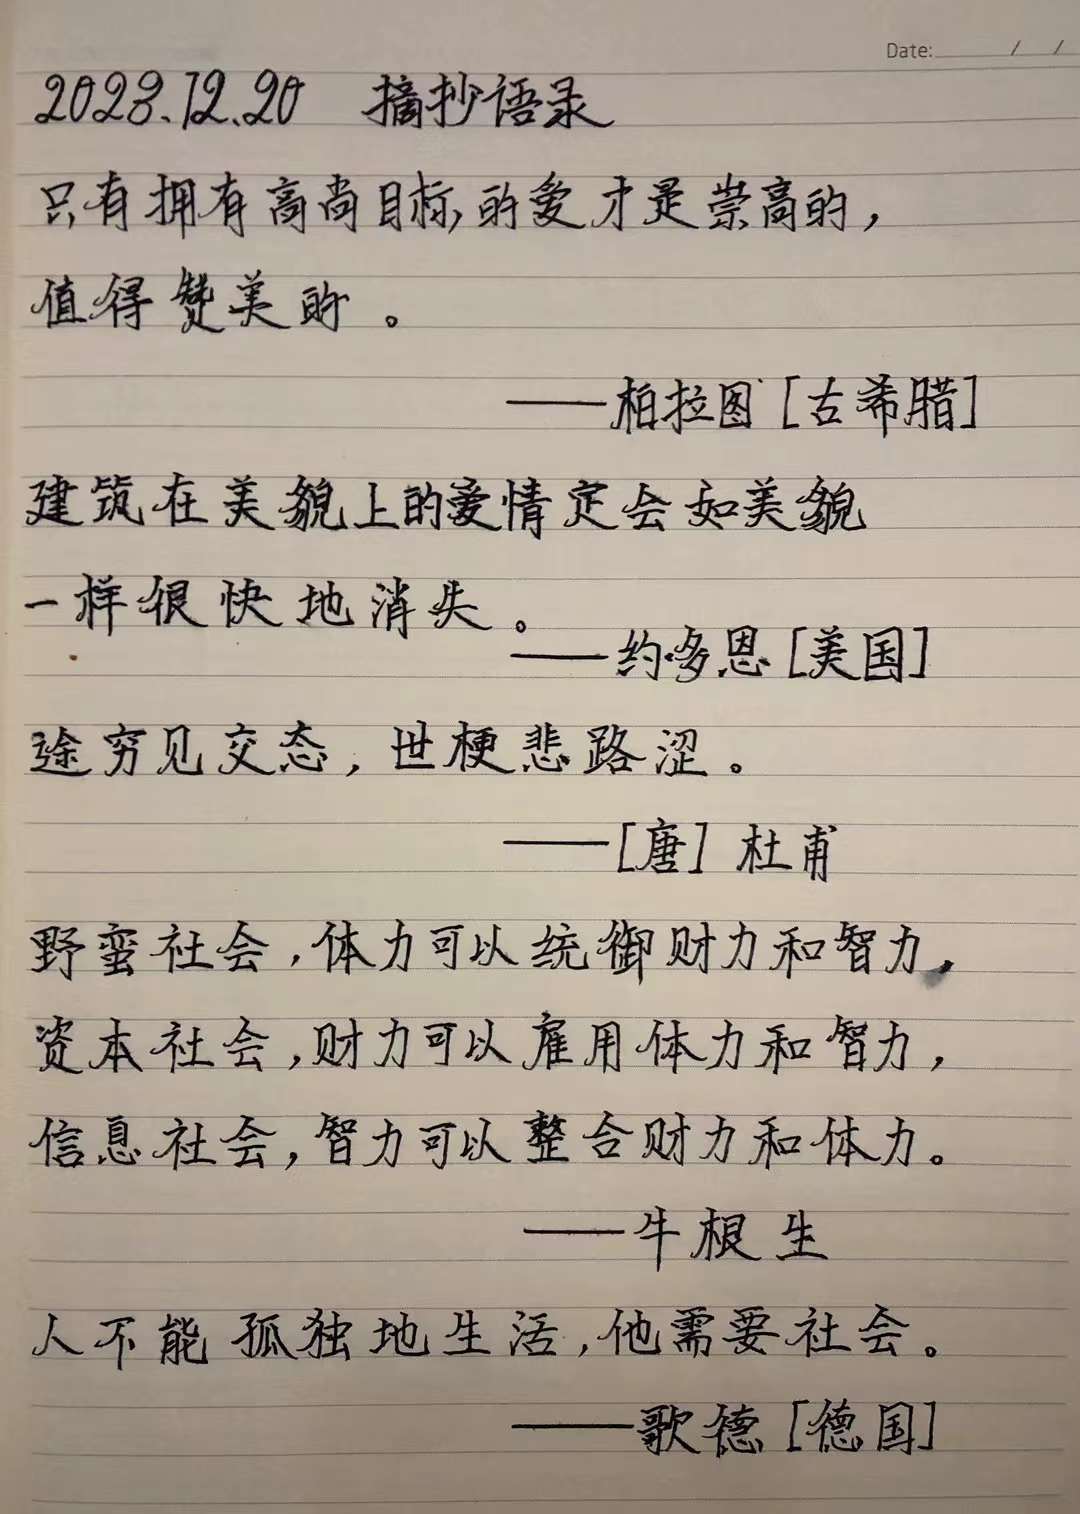 Date: / /
2023.12.20 摘抄语录
只有拥有高尚目标,的爱才是崇高的,
值得赞美的。
——柏拉图[古希腊]
建筑在美貌上的爱情定会如美貌
一样很快地消失。
——约多恩[美国]
途穷见交态,世梗悲路涩。
——[唐]杜甫
野蛮社会,体力可以统御财力和智力,
资本社会,财力可以雇用体力和智力,
信息社会,智力可以整合财力和体力。
——牛根生
人不能孤独地生活,他需要社会。
——歌德[德国]